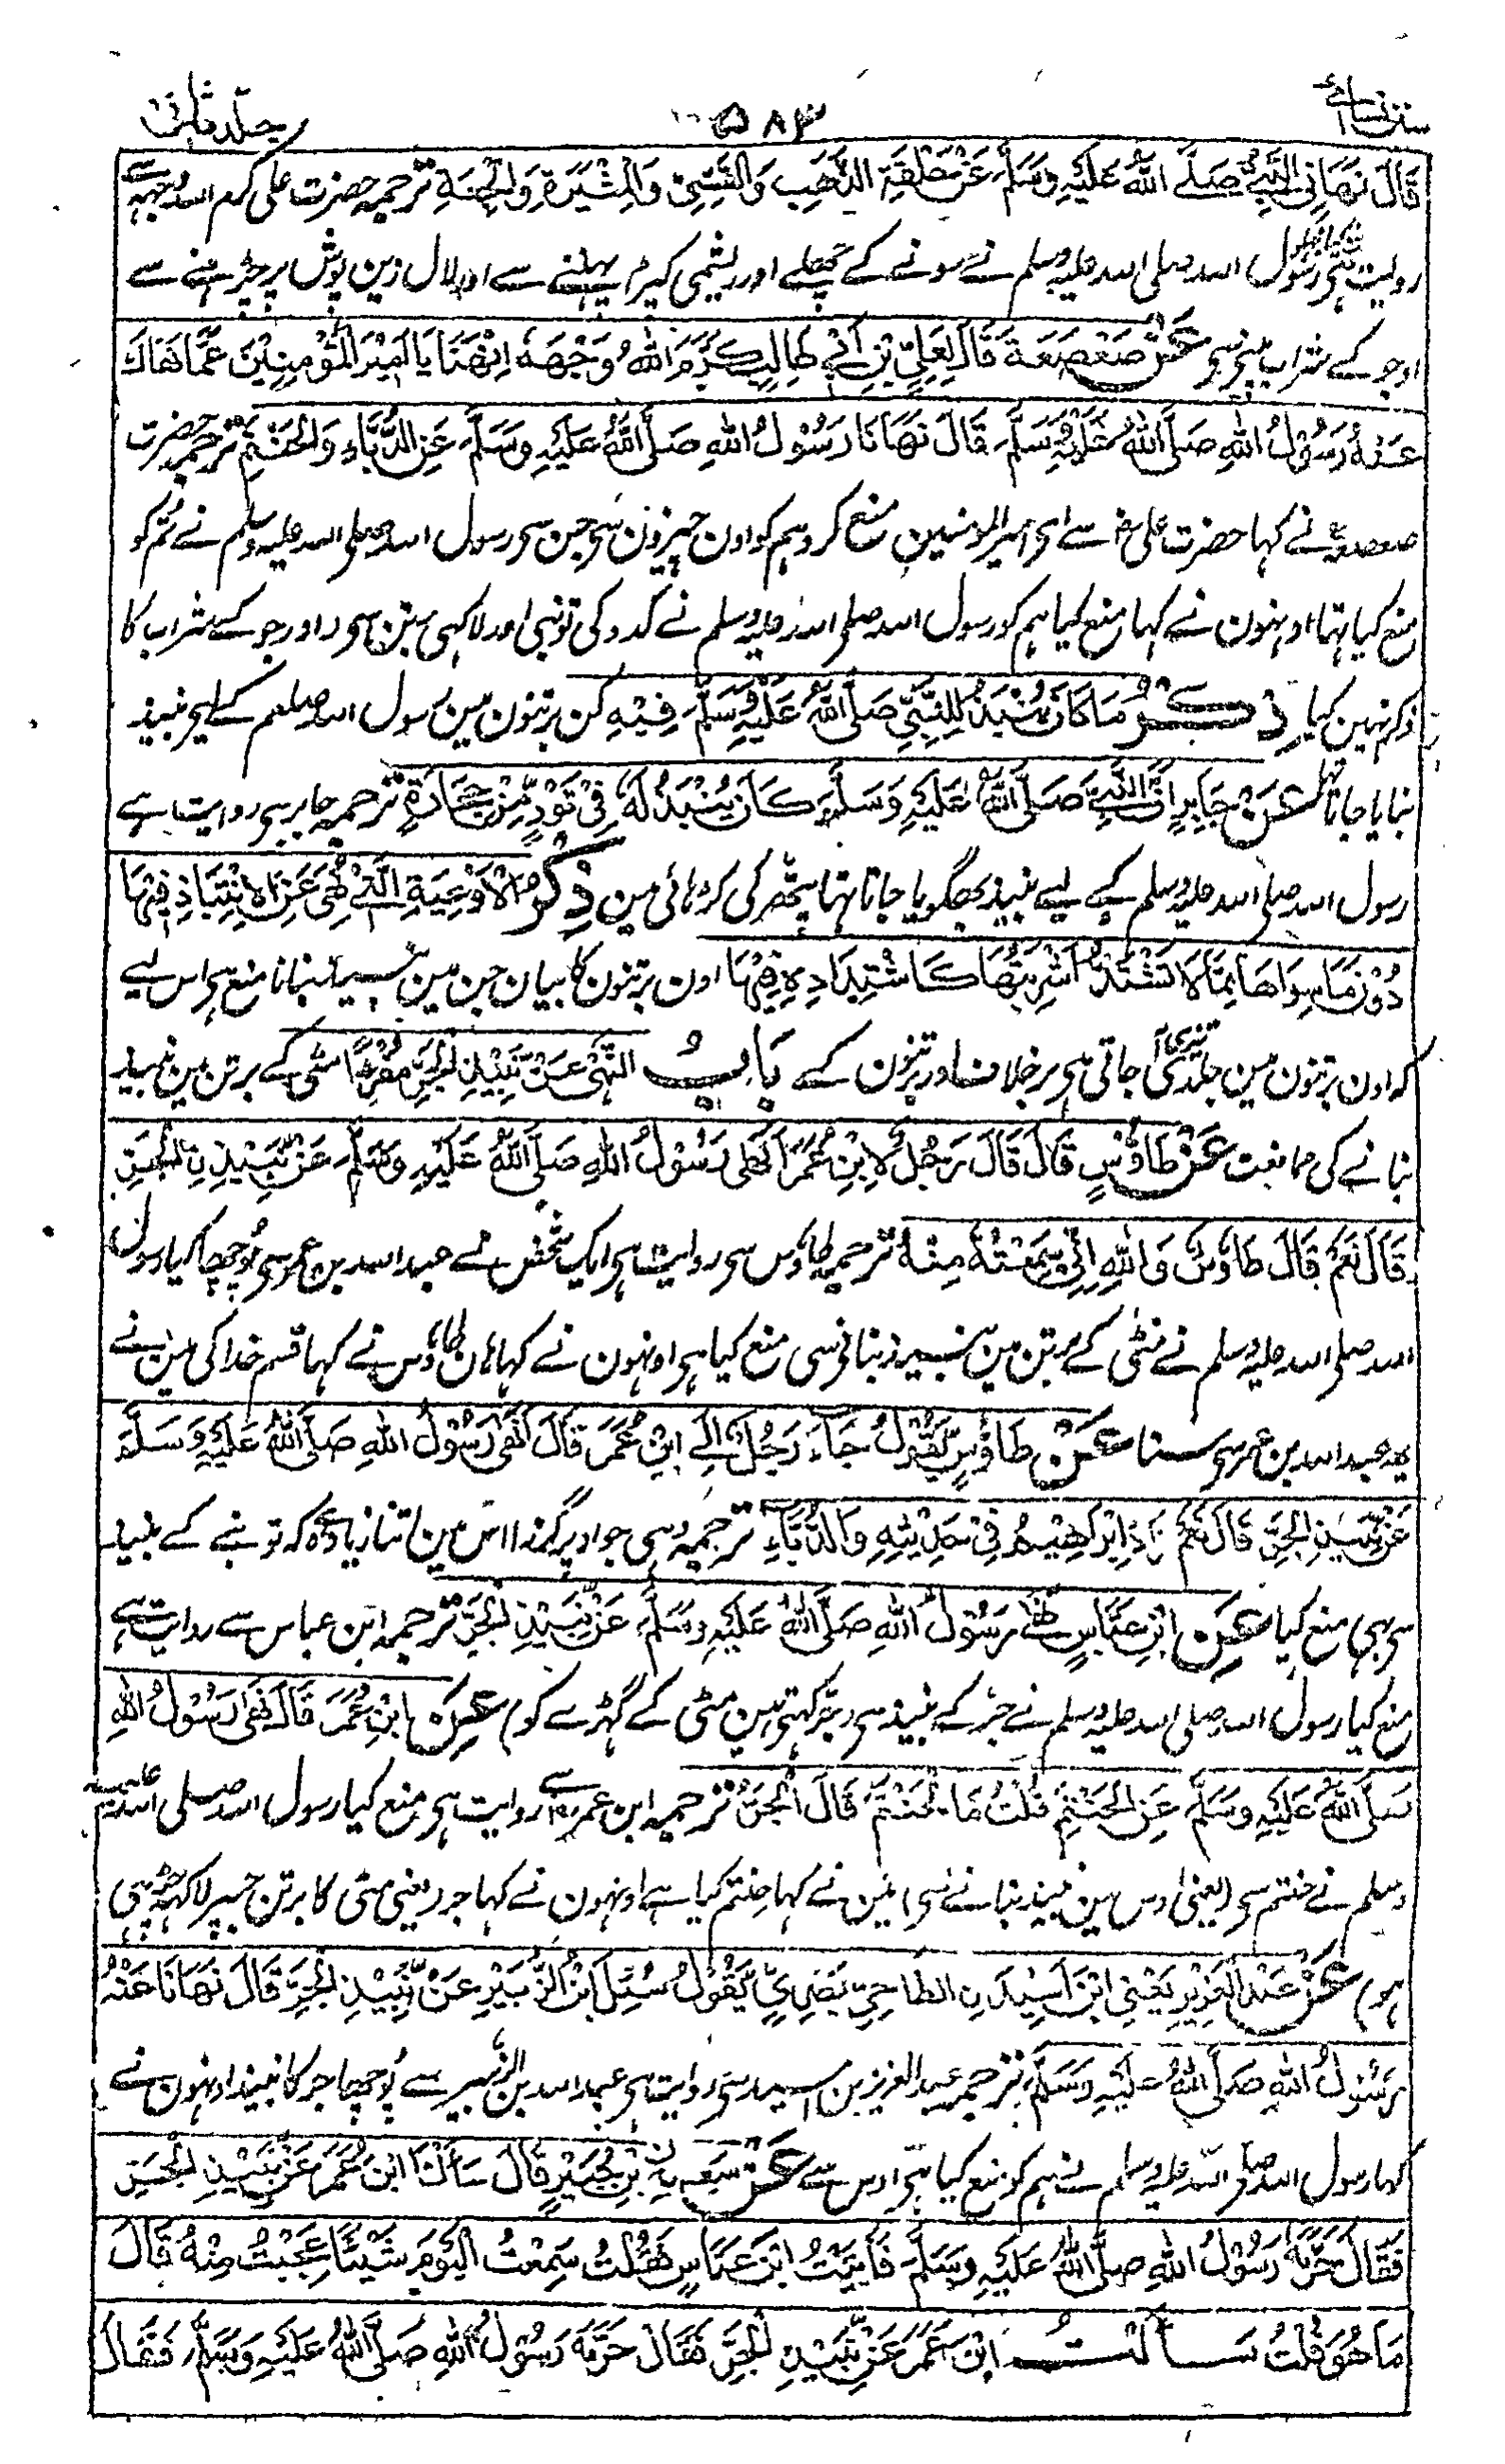 سنن نسائی ۵۸۳ جلد ثانی
قَالَ نَهَانِی النَّبِیُّ صَلَّی اللّٰہُ عَلَیْہِ وَسَلَّمَ عَنْ حَلْقَةِ الذَّهَبِ وَالْقَسِّیِّ وَالْمِیْثَرَةِ وَالْجِعَةِ ترجمہ حضرت علی کرم اللہ وجہہ سے
روایت ہی رسول اللہ صلی اللہ علیہ وسلم نے سونے کے چھلے اور ریشمی کپڑا پہننے سے اور لال زین پوش پر چڑہنے سے
اور جو کے شراب سے عَنْ صَعْصَعَةَ قَالَ لِعَلِیِّ بْنِ اَبِیْ طَالِبٍ کَرَّمَ اللّٰہُ وَجْهَهُ اِنْهَنَا یَا اَمِیْرَ الْمُؤْمِنِیْنَ عَمَّا نَهَاكَ
عَنْهُ رَسُوْلُ اللّٰہِ صَلَّی اللّٰہُ عَلَیْہِ وَسَلَّمَ قَالَ نَهَانَا رَسُوْلُ اللّٰہِ صَلَّی اللّٰہُ عَلَیْہِ وَسَلَّمَ عَنِ الدُّبَّاءِ وَالْحَنْتَمِ ترجمہ حضرت
صعصعہ نے کہا حضرت علی رض سے ای امیر المومنین منع کرو ہم کو اون چیزون سی جن سی رسول اللہ صلی اللہ علیہ وسلم نے تم کو
منع کیا تہا اونہون نے کہا منع کیا ہم کو رسول اللہ صلی اللہ علیہ وسلم نے کدو کی تونبی اور لاکہی برتن سی اور جو کے شراب کا
ذکر نہین کیا ذِکْرُ مَا کَانَ یُنْبَذُ لِلنَّبِیِّ صَلَّی اللّٰہُ عَلَیْہِ وَسَلَّمَ فِیْهِ کن برتنون مین رسول اللہ صلعم کے لیے نبیذ
بنایا جاتا تہا عَنْ جَابِرٍ اَنَّ النَّبِیَّ صَلَّی اللّٰہُ عَلَیْہِ وَسَلَّمَ کَانَ یُنْبَذُ لَهٗ فِیْ تَوْرٍ مِّنْ حِجَارَةٍ ترجمہ جابر سی روایت ہے
رسول اللہ صلی اللہ علیہ وسلم کے لیے نبیذ بھگویا جاتا تہا پتھر کی کڑہائی مین ذِکْرُ الْاَوْعِیَةِ الَّتِیْ نُهِیَ عَنِ الْاِنْتِبَاذِ فِیْهَا
دُوْنَ مَا سِوَاهَا مِمَّا لَا تَشْتَدُّ اَشْرِبَتُهَا کَاشْتِدَادِهٖ فِیْهَا اون برتنون کا بیان جن مین نبیذ بنانا منع ہی اس لیے
کہ اون برتنون مین جلدی تیزی آ جاتی ہی برخلاف اور برتنون کے بَابُ النَّهْیِ عَنْ نَبِیْذِ الْجَرِّ مُفْرَدًا مٹی کے برتن مین نبیذ
بنانے کی ممانعت عَنْ طَاوُسٍ قَالَ قَالَ رَجُلٌ لِابْنِ عُمَرَ اَنَهٰی رَسُوْلُ اللّٰہِ صَلَّی اللّٰہُ عَلَیْہِ وَسَلَّمَ عَنْ نَبِیْذِ الْجَرِّ
قَالَ نَعَمْ قَالَ طَاوُسٌ وَاللّٰہِ اِنِّیْ سَمِعْتُهٗ مِنْهُ ترجمہ طاؤس سی روایت ہی ایک شخص نے عبداللہ بن عمر سی پوچھا کیا رسول
اللہ صلی اللہ علیہ وسلم نے مٹی کے برتن مین نبیذ بنانی سی منع کیا ہی اونہون نے کہا ہان طاؤس نے کہا قسم خدا کی مین نے
یہ عبداللہ بن عمر سی سنا عَنْ طَاوُسٍ یَقُوْلُ جَاءَ رَجُلٌ اِلَی ابْنِ عُمَرَ قَالَ اَنَهٰی رَسُوْلُ اللّٰہِ صَلَّی اللّٰہُ عَلَیْہِ وَسَلَّمَ
عَنْ نَبِیْذِ الْجَرِّ قَالَ نَعَمْ زَادَ اِبْرَاهِیْمُ فِیْ حَدِیْثِهٖ وَالدُّبَّاءِ ترجمہ وہی جو اوپر گزرا اس مین اتنا زیادہ ہی کہ تونبے کے نبیذ
سی بہی منع کیا عَنِ ابْنِ عَبَّاسٍ نَهٰی رَسُوْلُ اللّٰہِ صَلَّی اللّٰہُ عَلَیْہِ وَسَلَّمَ عَنْ نَبِیْذِ الْجَرِّ ترجمہ ابن عباس سے روایت ہے
منع کیا رسول اللہ صلی اللہ علیہ وسلم نے جر کے نبیذ سی (جر کہتی ہین مٹی کے گہڑے کو) عَنِ ابْنِ عُمَرَ قَالَ نَهٰی رَسُوْلُ اللّٰہِ
صَلَّی اللّٰہُ عَلَیْہِ وَسَلَّمَ عَنِ الْحَنْتَمِ قُلْتُ مَا الْحَنْتَمُ قَالَ الْجَرُّ ترجمہ ابن عمر رض سے روایت ہی منع کیا رسول اللہ صلی اللہ علیہ
وسلم نے حنتم سی (یعنی اوس مین نبیذ بنانے سی) مین نے کہا حنتم کیا ہے اونہون نے کہا جر (یعنی مٹی کا برتن جسپر لاکہہ چڑہی
ہو) عَنْ عَبْدِ الْعَزِیْزِ یَعْنِی ابْنَ اَسِیْدٍ الطَّاحِیِّ بَصْرِیٌّ یَقُوْلُ سُئِلَ ابْنُ الزُّبَیْرِ عَنْ نَبِیْذِ الْجَرِّ قَالَ نَهَانَا عَنْهُ
رَسُوْلُ اللّٰہِ صَلَّی اللّٰہُ عَلَیْہِ وَسَلَّمَ ترجمہ عبدالعزیز بن اسید سی روایت ہی عبداللہ بن الزبیر سے پوچھا جر کا نبیذ اونہون نے
کہا رسول اللہ صلی اللہ علیہ وسلم نے ہم کو منع کیا ہی اوس سے عَنْ سَعِیْدِ بْنِ جُبَیْرٍ قَالَ سَاَلْنَا ابْنَ عُمَرَ عَنْ نَبِیْذِ الْجَرِّ
فَقَالَ حَرَّمَهٗ رَسُوْلُ اللّٰہِ صَلَّی اللّٰہُ عَلَیْہِ وَسَلَّمَ فَاَتَیْتُ ابْنَ عَبَّاسٍ فَقُلْتُ سَمِعْتُ الْیَوْمَ شَیْئًا عَجِبْتُ مِنْهُ قَالَ
مَا هُوَ قُلْتُ سَاَلْتُ ابْنَ عُمَرَ عَنْ نَبِیْذِ الْجَرِّ فَقَالَ حَرَّمَهٗ رَسُوْلُ اللّٰہِ صَلَّی اللّٰہُ عَلَیْہِ وَسَلَّمَ فَقَالَ